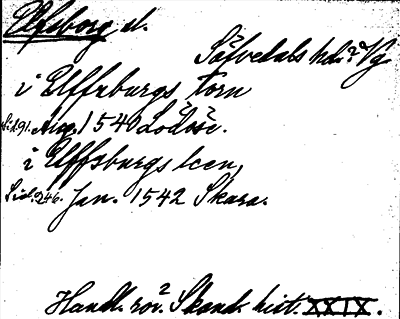 Elfsborg sl.
Säfvedals hd: Vg
i Elffzburgs torn
Sid. 91. Aug. 1540 Lödöse.
i Elffzburgs leen,
Sid. 246. Jan. 1542 Skara.
Handl. rör. Skand. hist. XXIX.